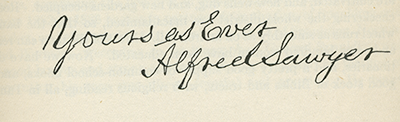 Yours as Ever
Alfred Sawyer